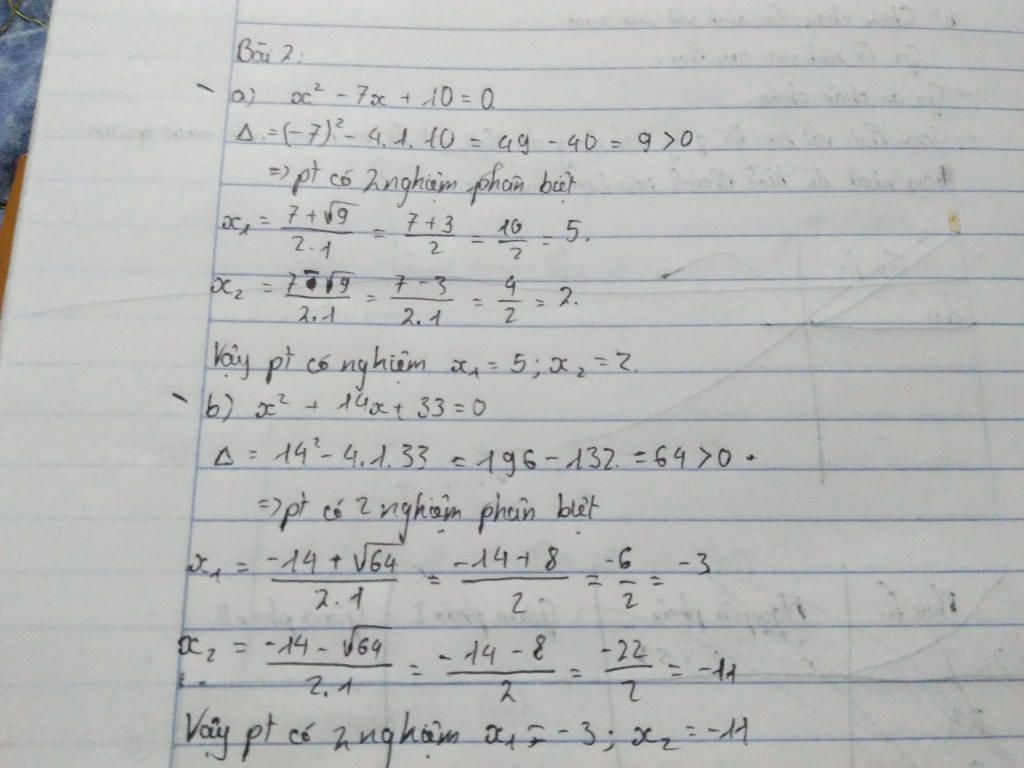 Bài 2:
a) x² - 7x + 10 = 0
Δ = (-7)² - 4.1.10 = 49 - 40 = 9 > 0
=> pt có 2 nghiệm phân biệt
x₁ = (7 + √9)/(2.1) = (7 + 3)/2 = 10/2 = 5.
x₂ = (7 - √9)/(2.1) = (7 - 3)/(2.1) = 4/2 = 2.
Vậy pt có nghiệm x₁ = 5 ; x₂ = 2.
b) x² + 14x + 33 = 0
Δ = 14² - 4.1.33 = 196 - 132 = 64 > 0.
=> pt có 2 nghiệm phân biệt
x₁ = (-14 + √64)/(2.1) = (-14 + 8)/2 = -6/2 = -3
x₂ = (-14 - √64)/(2.1) = (-14 - 8)/2 = -22/2 = -11
Vậy pt có 2 nghiệm x₁ = -3 ; x₂ = -11